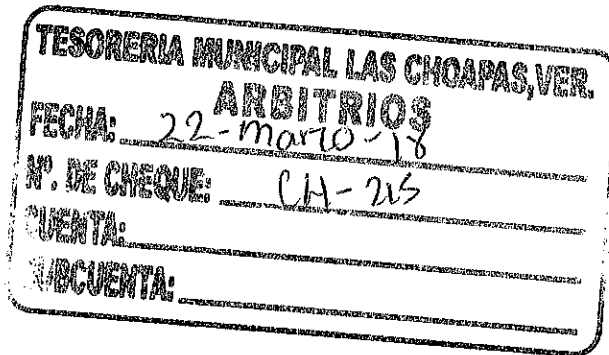 TESORERIA MUNICIPAL LAS CHOAPAS, VER.
ARBITRIOS
FECHA: 22-marzo-18
Nº. DE CHEQUE: CH-215
CUENTA:
SUBCUENTA: